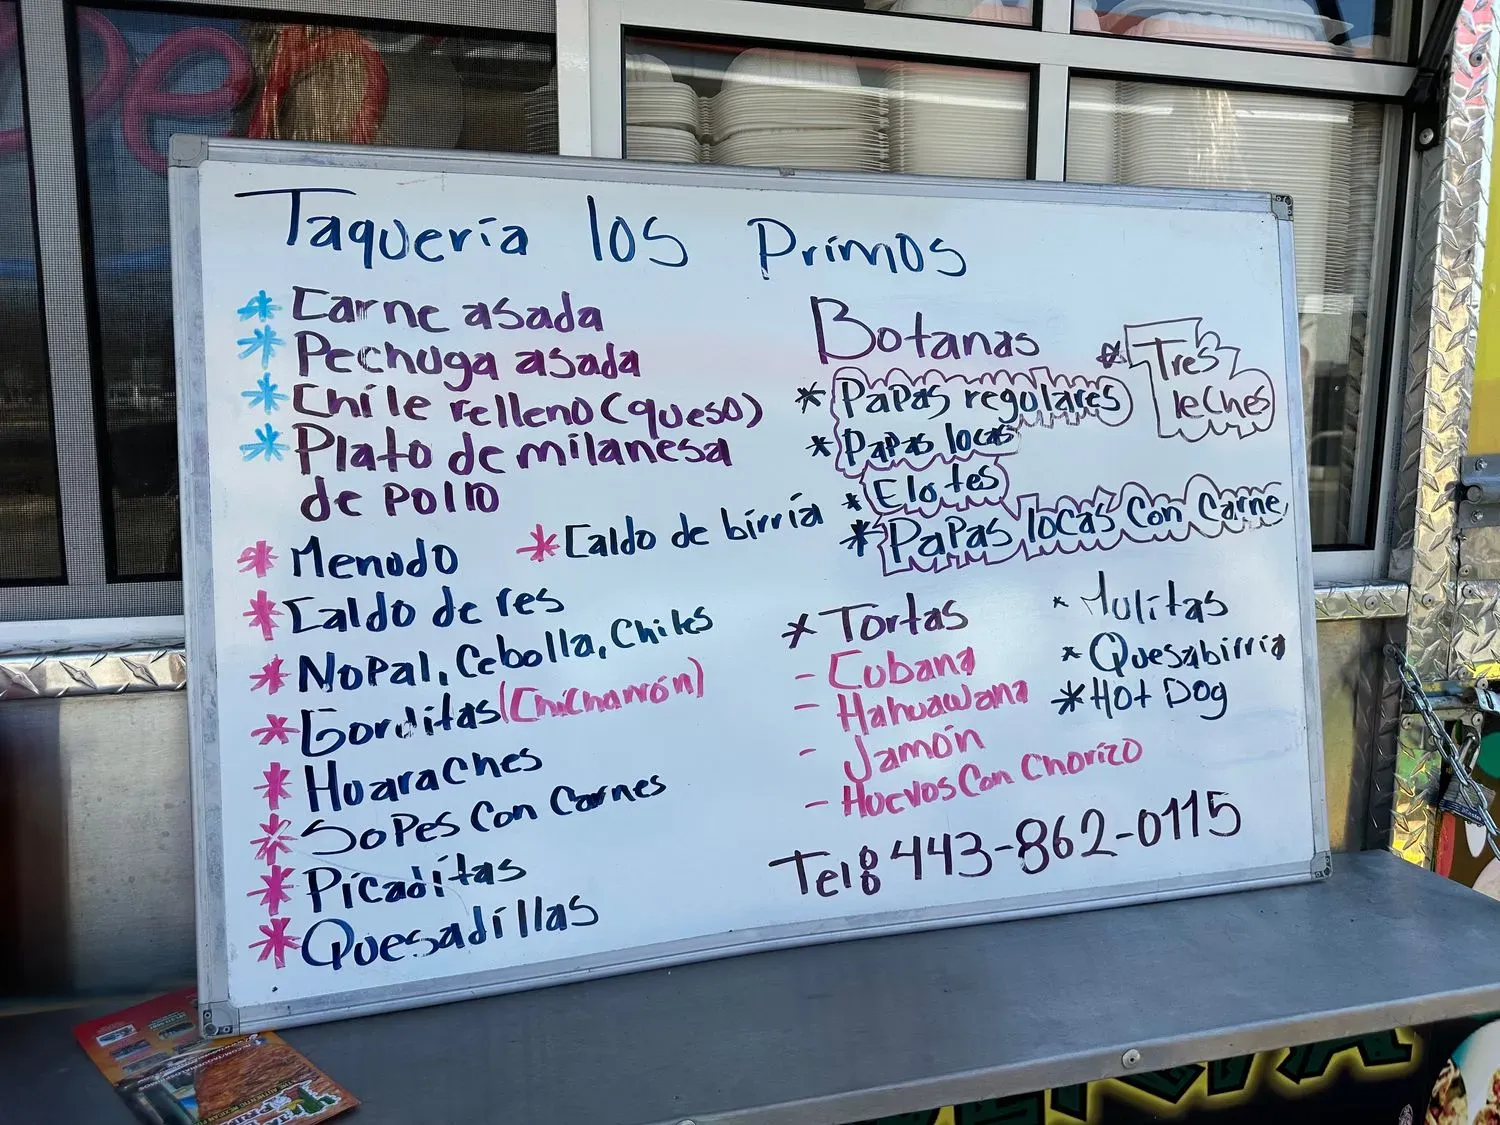 open
Taquería los Primos
* Carne asada
* Pechuga asada
* Chile relleno (queso)
* Plato de milanesa
de pollo
* Menodo
* Caldo de birría
* Caldo de res
* Nopal, Cebolla, Chiles
* Gorditas (Chicharrón)
* Huaraches
* Sopes con Carnes
* Picaditas
* Quesadillas
Botanas
* Papas regulares
* Papas locas
* Elotes
* Papas locas con Carne
* Tres
leches
* Tortas
- Cubana
- Hahuawana
- Jamón
- Huevos con Chorizo
* Mulitas
* Quesabirria
* Hot Dog
Tel: 443-862-0115